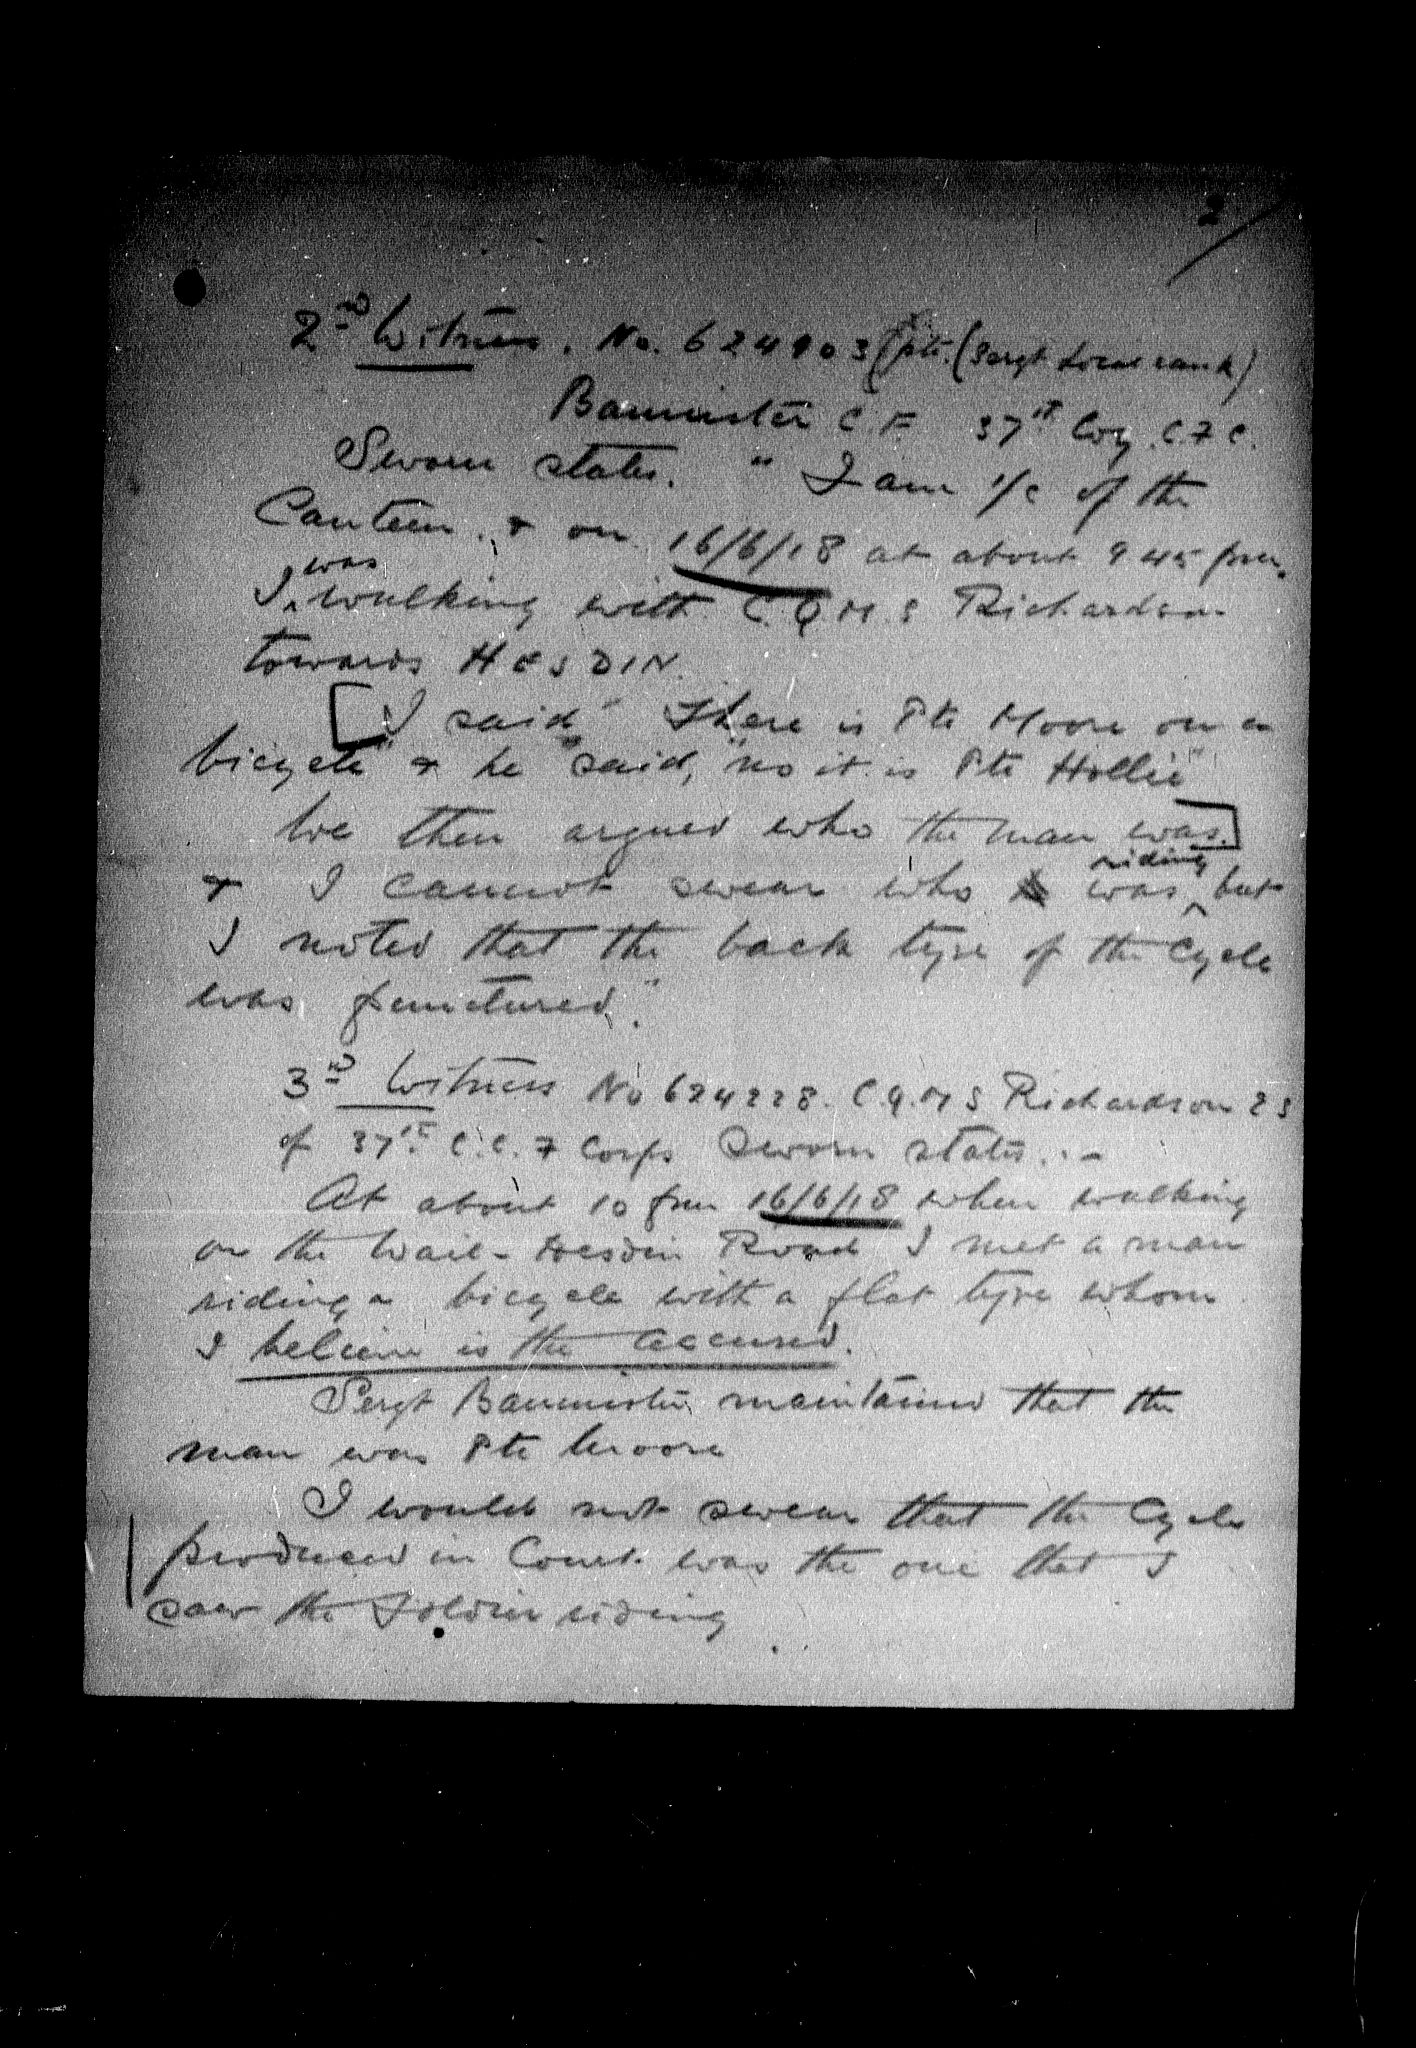 2
2nd Witness. No. 624903 (Pte. (Sergt Local rank)
Bannister C.F. 37th Coy. C.F.C.
Sworn states. " I am i/c of the
Canteen. & on 16/6/18 at about 9 45 pm.
I was walking with C.Q.M.S Richardson
towards HESDIN.
[I said " There is Pte Moore on a
bicycle" & he said, "no it is Pte Hollie"
We then argued who the man was.]
& I cannot swear who was riding but
I noted that the back tyre of the Cycle
was punctured."
3rd Witness No 624228. C.Q.M S Richardson
of 37th C.C.F Corps Sworn states. –
At about 10 pm 16/6/18 when walking
on the Wail - Hesdin Road I met a man
riding a bicycle with a flat tyre whom
I believe is the accused.
Sergt Bannister maintained that the
man was Pte Moore
I would not swear that the Cycle
produced in Court was the one that I
saw the Soldier riding